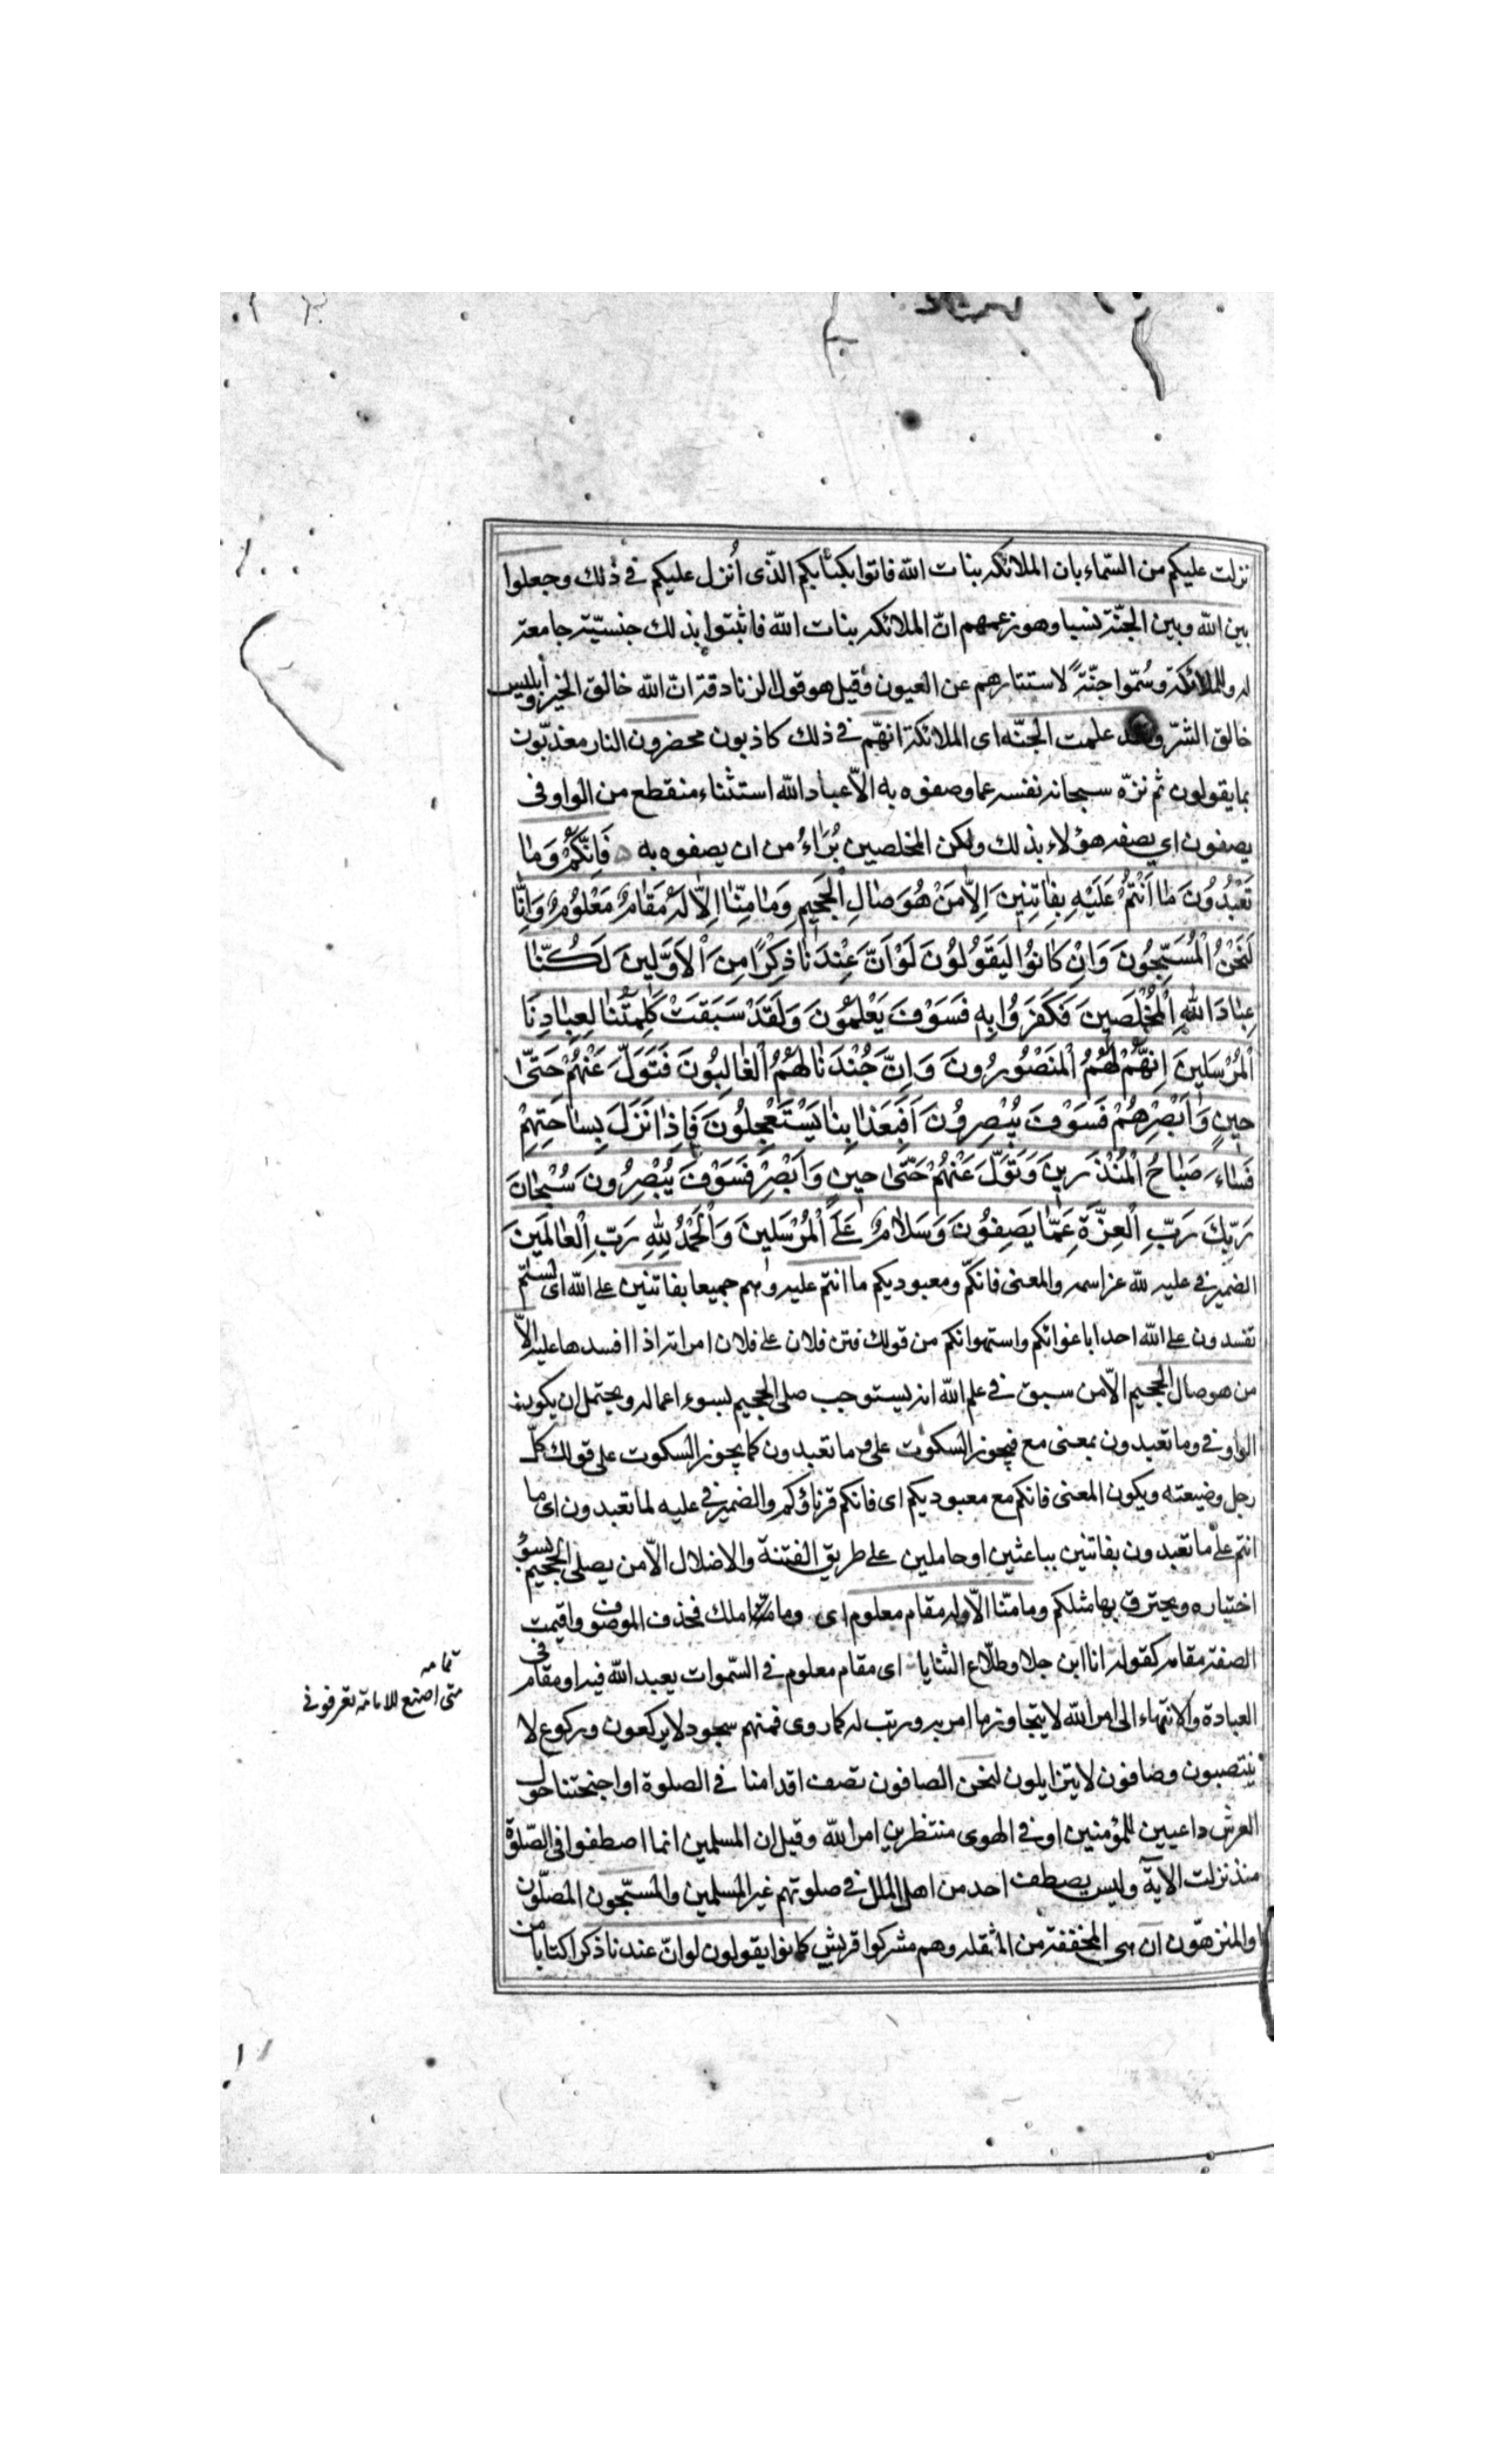 نزلت عليكم من السّماء بان الملائكه بنات الله فاتوا بكتابكم الّذى اُنزل عليكم في ذلك وجعلوا
بين الله وبين الجنّة نسبا وهو زعمهم انّ الملائكه بنات الله فاثبتوا بذلك جنسيّة جامعة
له وللملائكة وسُمّوا جنّةً لاستتارهم عن العيون وقيل هو قول الزنادقة انّ الله خالق الخير وابليس
خالق الشرّ ولقد علمت الجنّه اى الملائكة انهّم في ذلك كاذبون محضرون النار معذبّون
بما يقولون ثم نزّه سبحانه نفسه عما وصفوه به الاّ عباد الله استثناء منقطع من الواو فى
يصفون اي يصفه هؤلاء بذلك ولكن المخلصين بُرَاءُ من ان يصفوه به فَاِنَّكُمْ وَمٰا
تَعْبُدُونَ مٰا اَنْتُمْ عَلَيْهِ بِفٰاتِنِينَ اِلاّٰ مَنْ هُوَ صٰالِ الْجَحِيمِ وَمٰا مِنّٰا اِلاّٰ لَهُ مَقٰامٌ مَعْلُومٌ وَاِنّٰا
لَنَحْنُ الْمُسَبِّحُونَ وَاِنْ كٰانُوا لَيَقُولُونَ لَوْ اَنَّ عِنْدَنٰا ذِكْرًا مِنَ الْاَوَّلِينَ لَكُنّٰا
عِبٰادَ اللهِ الْمُخْلَصِينَ فَكَفَرُوا بِهِ فَسَوْفَ يَعْلَمُونَ وَلَقَدْ سَبَقَتْ كَلِمَتُنٰا لِعِبٰادِنَا
الْمُرْسَلِينَ اِنَّهُمْ لَهُمُ الْمَنْصُورُونَ وَاِنَّ جُنْدَنٰا لَهُمُ الْغٰالِبُونَ فَتَوَلَّ عَنْهُمْ حَتّٰى
حِينٍ وَاَبْصِرْهُمْ فَسَوْفَ يُبْصِرُونَ اَفَبِعَذٰابِنٰا يَسْتَعْجِلُونَ فَاِذٰا نَزَلَ بِسٰاحَتِهِمْ
فَسٰاءَ صَبٰاحُ الْمُنْذَرِينَ وَتَوَلَّ عَنْهُمْ حَتّٰى حِينٍ وَاَبْصِرْ فَسَوْفَ يُبْصِرُونَ سُبْحٰانَ
رَبِّكَ رَبِّ الْعِزَّةِ عَمّٰا يَصِفُونَ وَسَلاٰمٌ عَلَى الْمُرْسَلِينَ وَالْحَمْدُ لِلّٰهِ رَبِّ الْعٰالَمِينَ
الضمير في عليه للّه عز اسمه والمعنى فانكّم ومعبوديكم ما انتم عليه وهم جميعا بفاتنين على الله اى لستم
تفسدون على الله احدا باغوائكم واستهوائكم من قولك فتن فلان على فلان امراته اذا افسدها عليه الاّ
من هو صال الجحيم الاّ من سبق في علم الله انه يستوجب صلى الجحيم بسوء اعماله ويحتمل ان يكون
الواو في وما تعبدون بمعنى مع فيجوز السكوت على وما تعبدون كما يجوز السكوت على قولك كلّ
رجل وضيعته ويكون المعنى فانكم مع معبوديكم اى فانكم قرناؤكم والضمير في عليه لما تعبدون اى ما
انتم على ما تعبدون بفاتنين بباعثين او حاملين على طريق الفتنة والاضلال الاّ من يصلى الجحيم بسوٓء
اختياره ويحترق بها مثلكم وما منّا الاّ وله مقام معلوم اى وما منّا ملك فحذف الموصوف واقيمت
الصفة مقامه كقوله انا ابن جلا وطلاّع الثنايا اى مقام معلوم في السّموات يعبد الله فيه او مقام فى
العبادة والانتهاء الى امر الله لا يتجاوز ما امر به ورتب له كما روى فمنهم سجود لا يركعون وركوع لا
ينتصبون وصافون لا يتزايلون لنحن الصافون نصف اقدامنا في الصلوة او اجنحتنا حول
العرش داعيين للمؤمنين او في الهوى منتظرين امر الله وقيل ان المسلمين انما اصطفوا فى الصّلوة
منذ نزلت الآية وليس يصطف احد من اهل الملل في صلوتهم غير المسلمين والمسبّحون المصلّون
والمنزهّون ان هى المخففة من المثقله وهم مشركوا قريش كانوا يقولون لو انّ عندنا ذكرا كتابا من
تمامه
متى اضع العمامة تعرفونى